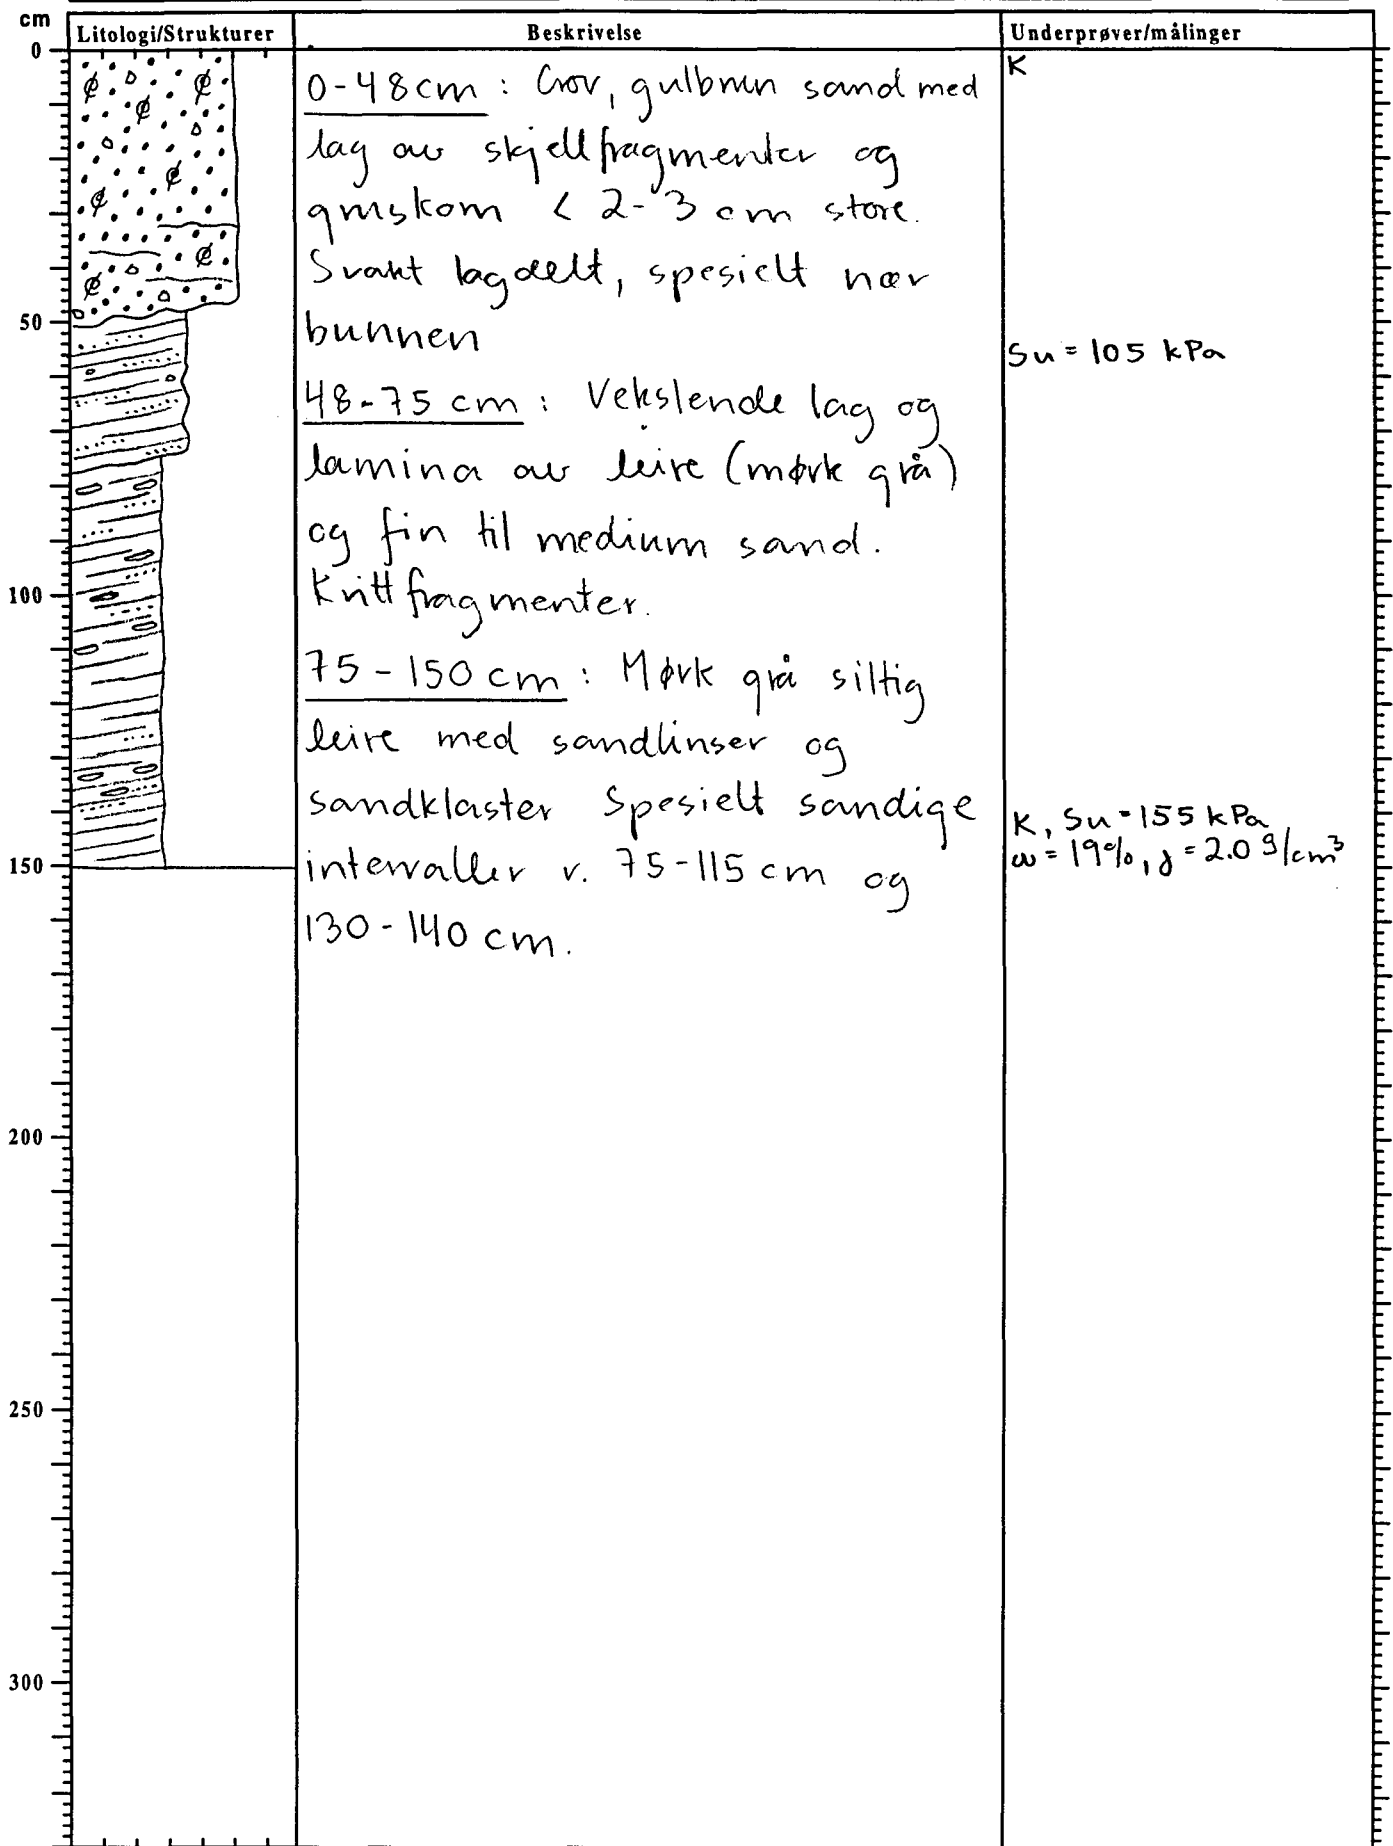 cm
Litologi/Strukturer
Beskrivelse
Underprøver/målinger
0
50
100
150
200
250
300
0-48cm : Grov, gulbrun sand med
lag av skjellfragmenter og
gruskorn < 2-3 cm store.
Svakt lagdelt, spesielt nær
bunnen
48-75 cm : Vekslende lag og
lamina av leire (mørk grå)
og fin til medium sand.
Krittfragmenter.
75-150 cm : Mørk grå siltig
leire med sandlinser og
sandklaster Spesielt sandige
intervaller v. 75-115 cm og
130-140 cm.
K
Su = 105 kPa
K, Su = 155 kPa
ω = 19%, γ = 2.0 g/cm³